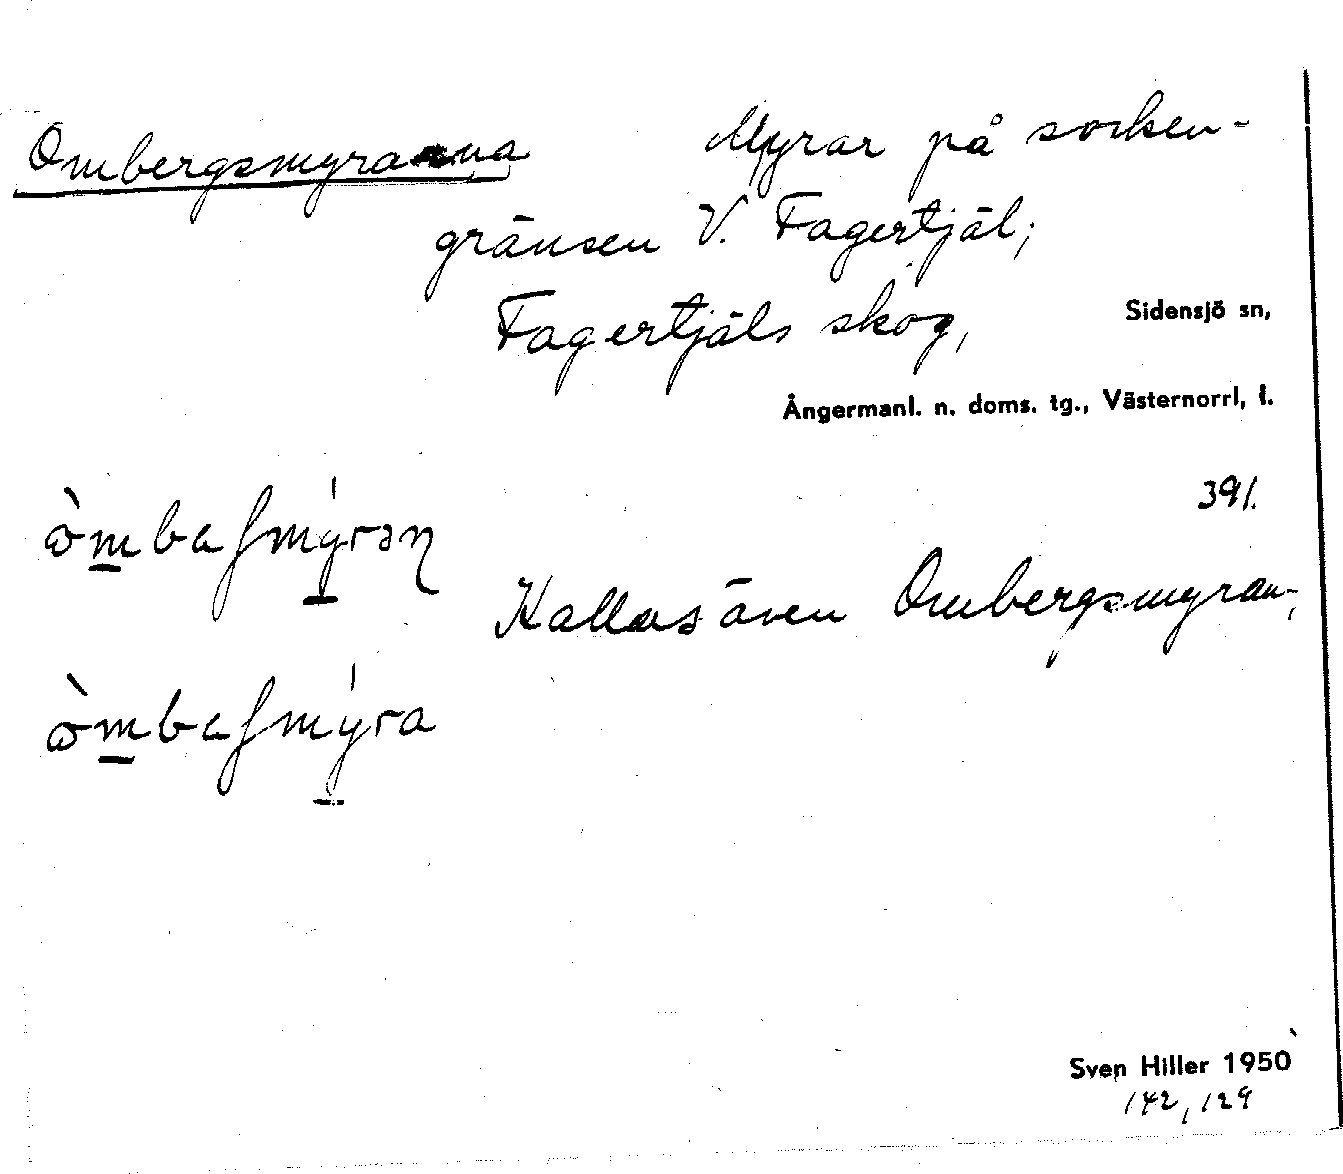 Ombergsmyrarna Myrar på socken-
gränsen V. Fagertjäl;
Fagertjäls skog,
Sidensjö sn,
Ångermanl. n. doms. tg., Västernorrl, l.
391.
Kallas även Ombergsmyran;
Sven Hiller 1950
142, 129